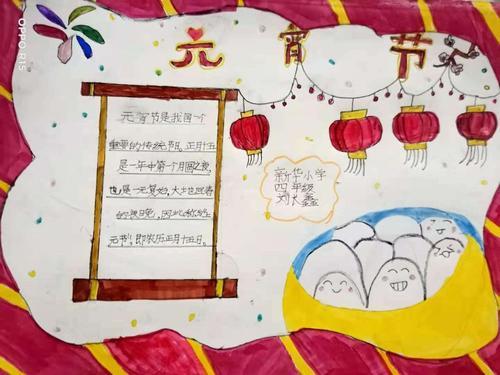 元宵节
元宵节是我国一个
重要的传统节日，正月十五
是一年中第一个月圆之夜，
也是一元复始，大地回春
的夜晚，因此
元节，即农历正月十五日。
新华小学
四年级
刘长鑫
OPPO R15